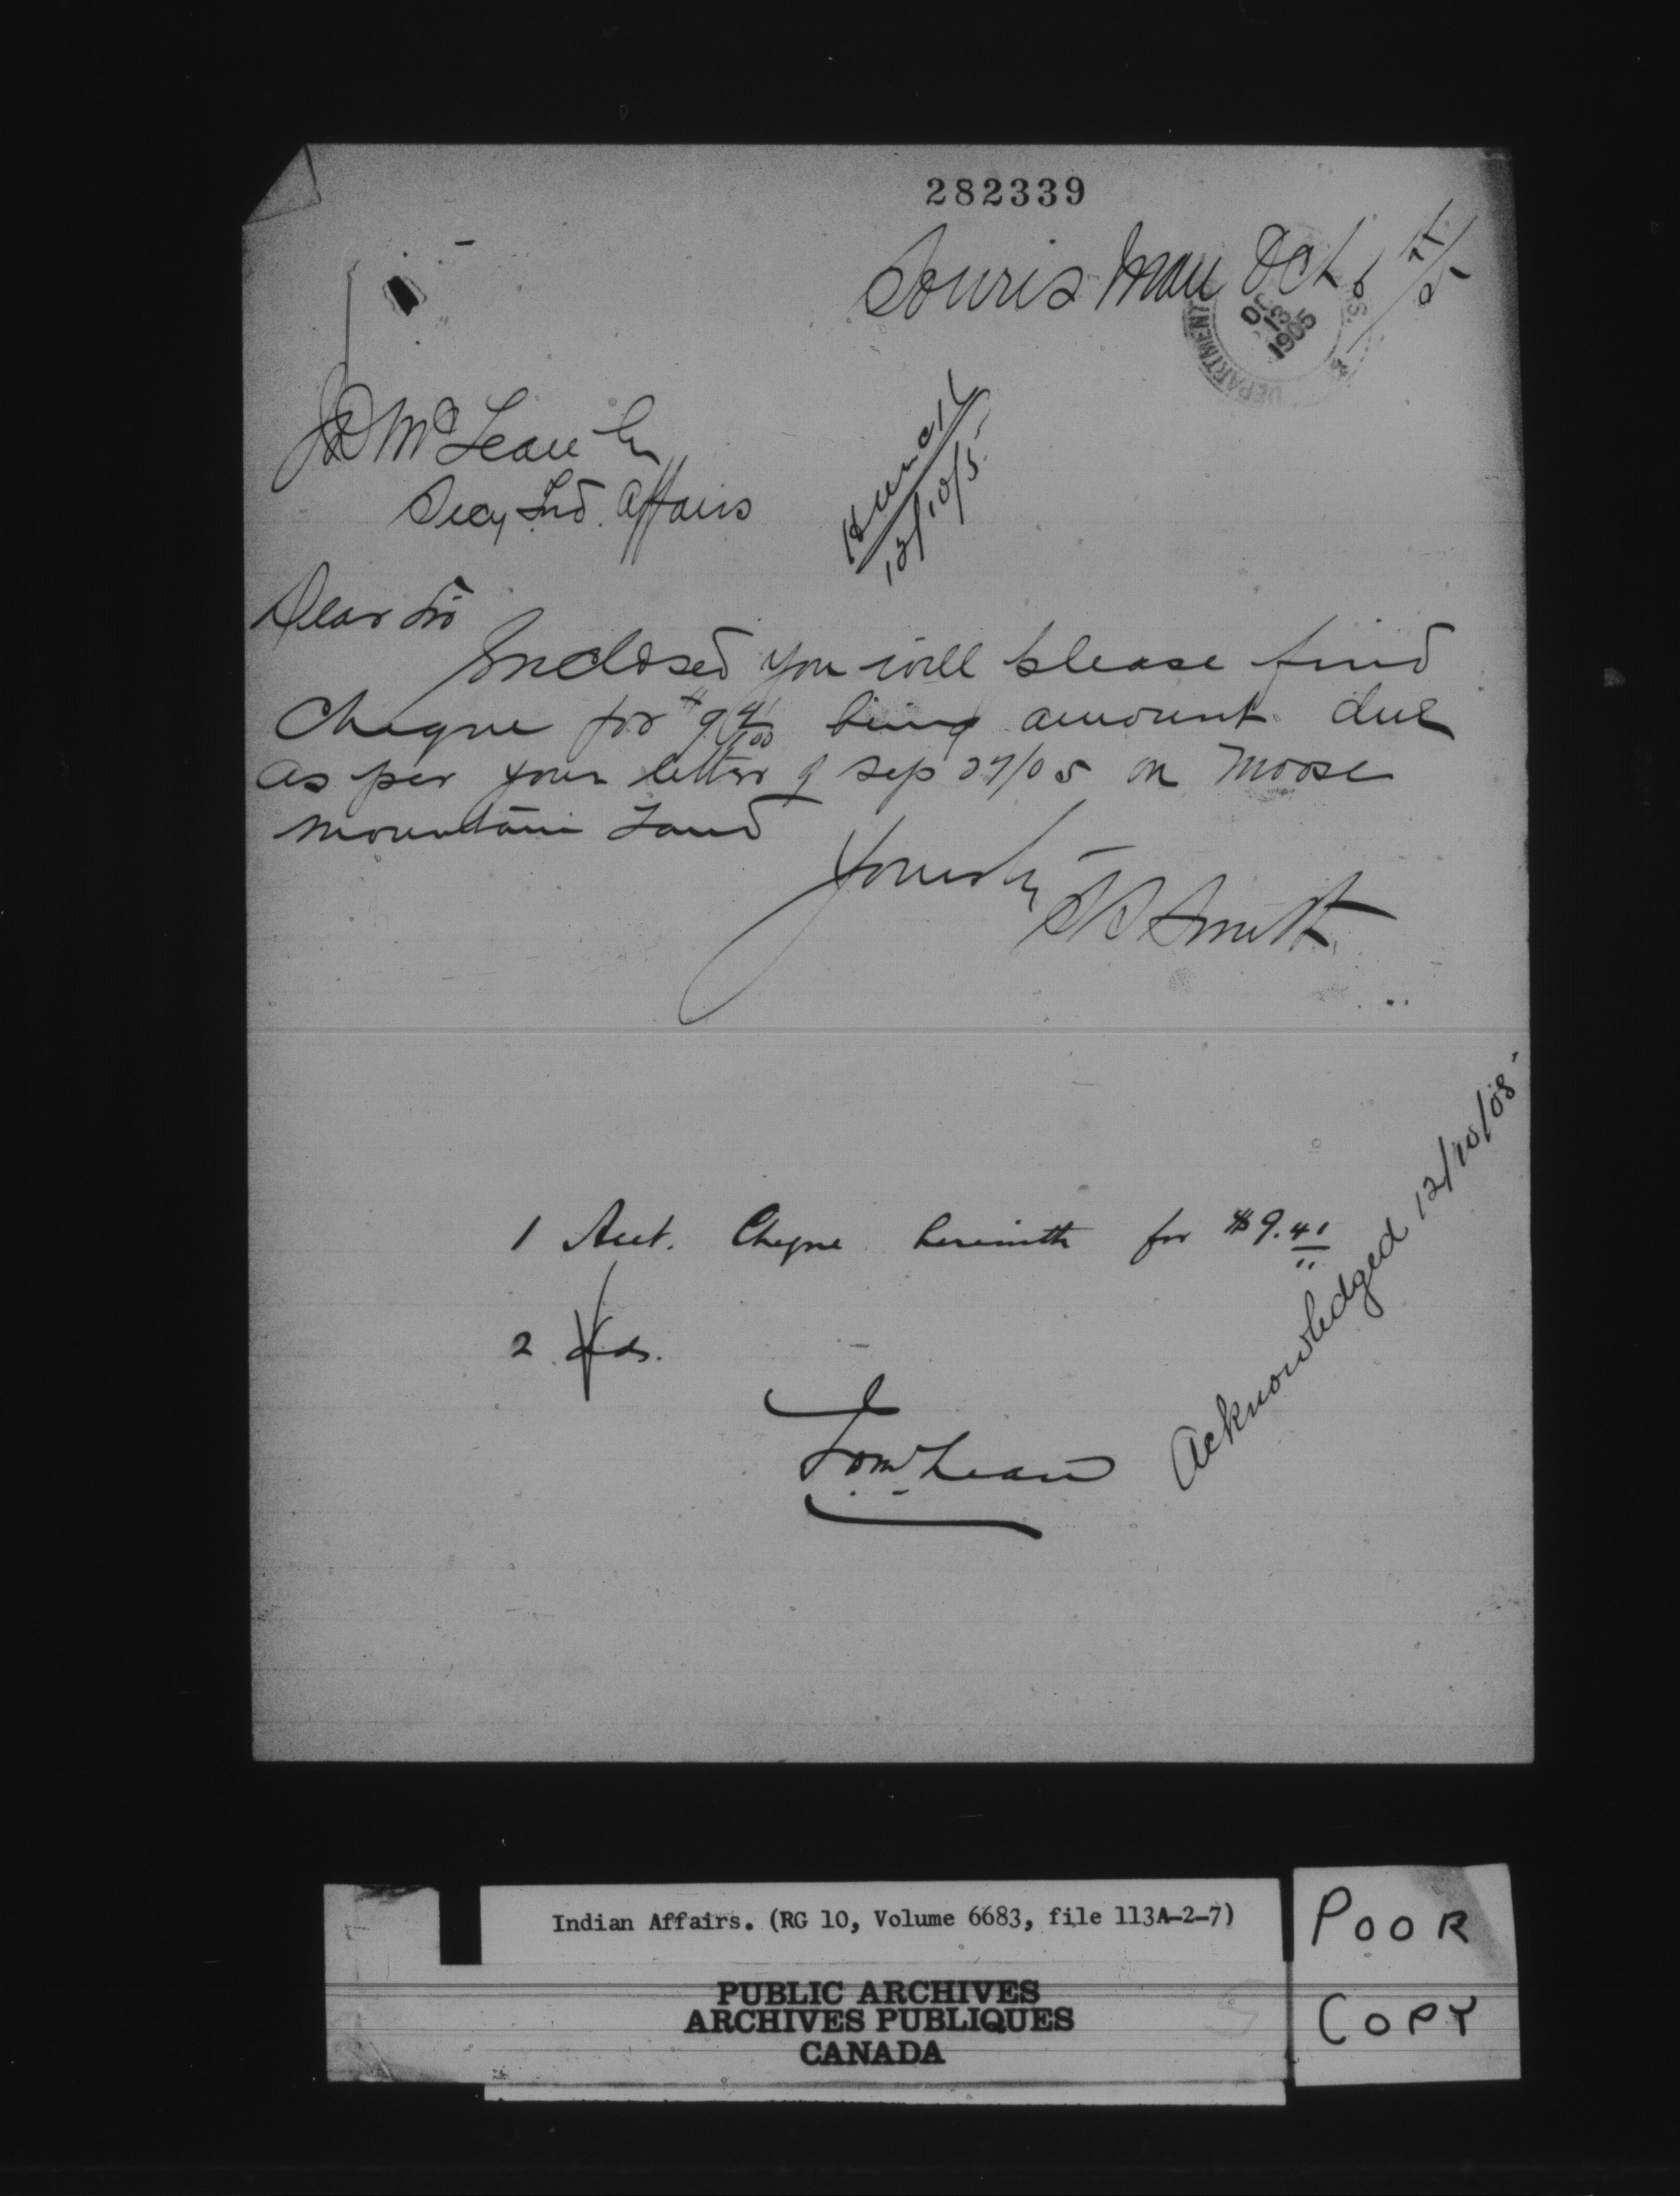 282339
Souris Man Oct 6th/05
DEPARTMENT
13
1905
J D McLean
Secy Ind. Affairs
12/10/5
Dear Sir
Inclosed you will please find
Cheque for $9 41/100 being amount due
as per your letter of Sep 27/05 on Moose
Mountain Land
Yours try
Smith
1 Acct. Cheque herewith for $9.41
2
McLean
Acknowledged 12/10/05
Indian Affairs. (RG 10, Volume 6683, file 113A-2-7)
PUBLIC ARCHIVES
ARCHIVES PUBLIQUES
CANADA
POOR
COPY